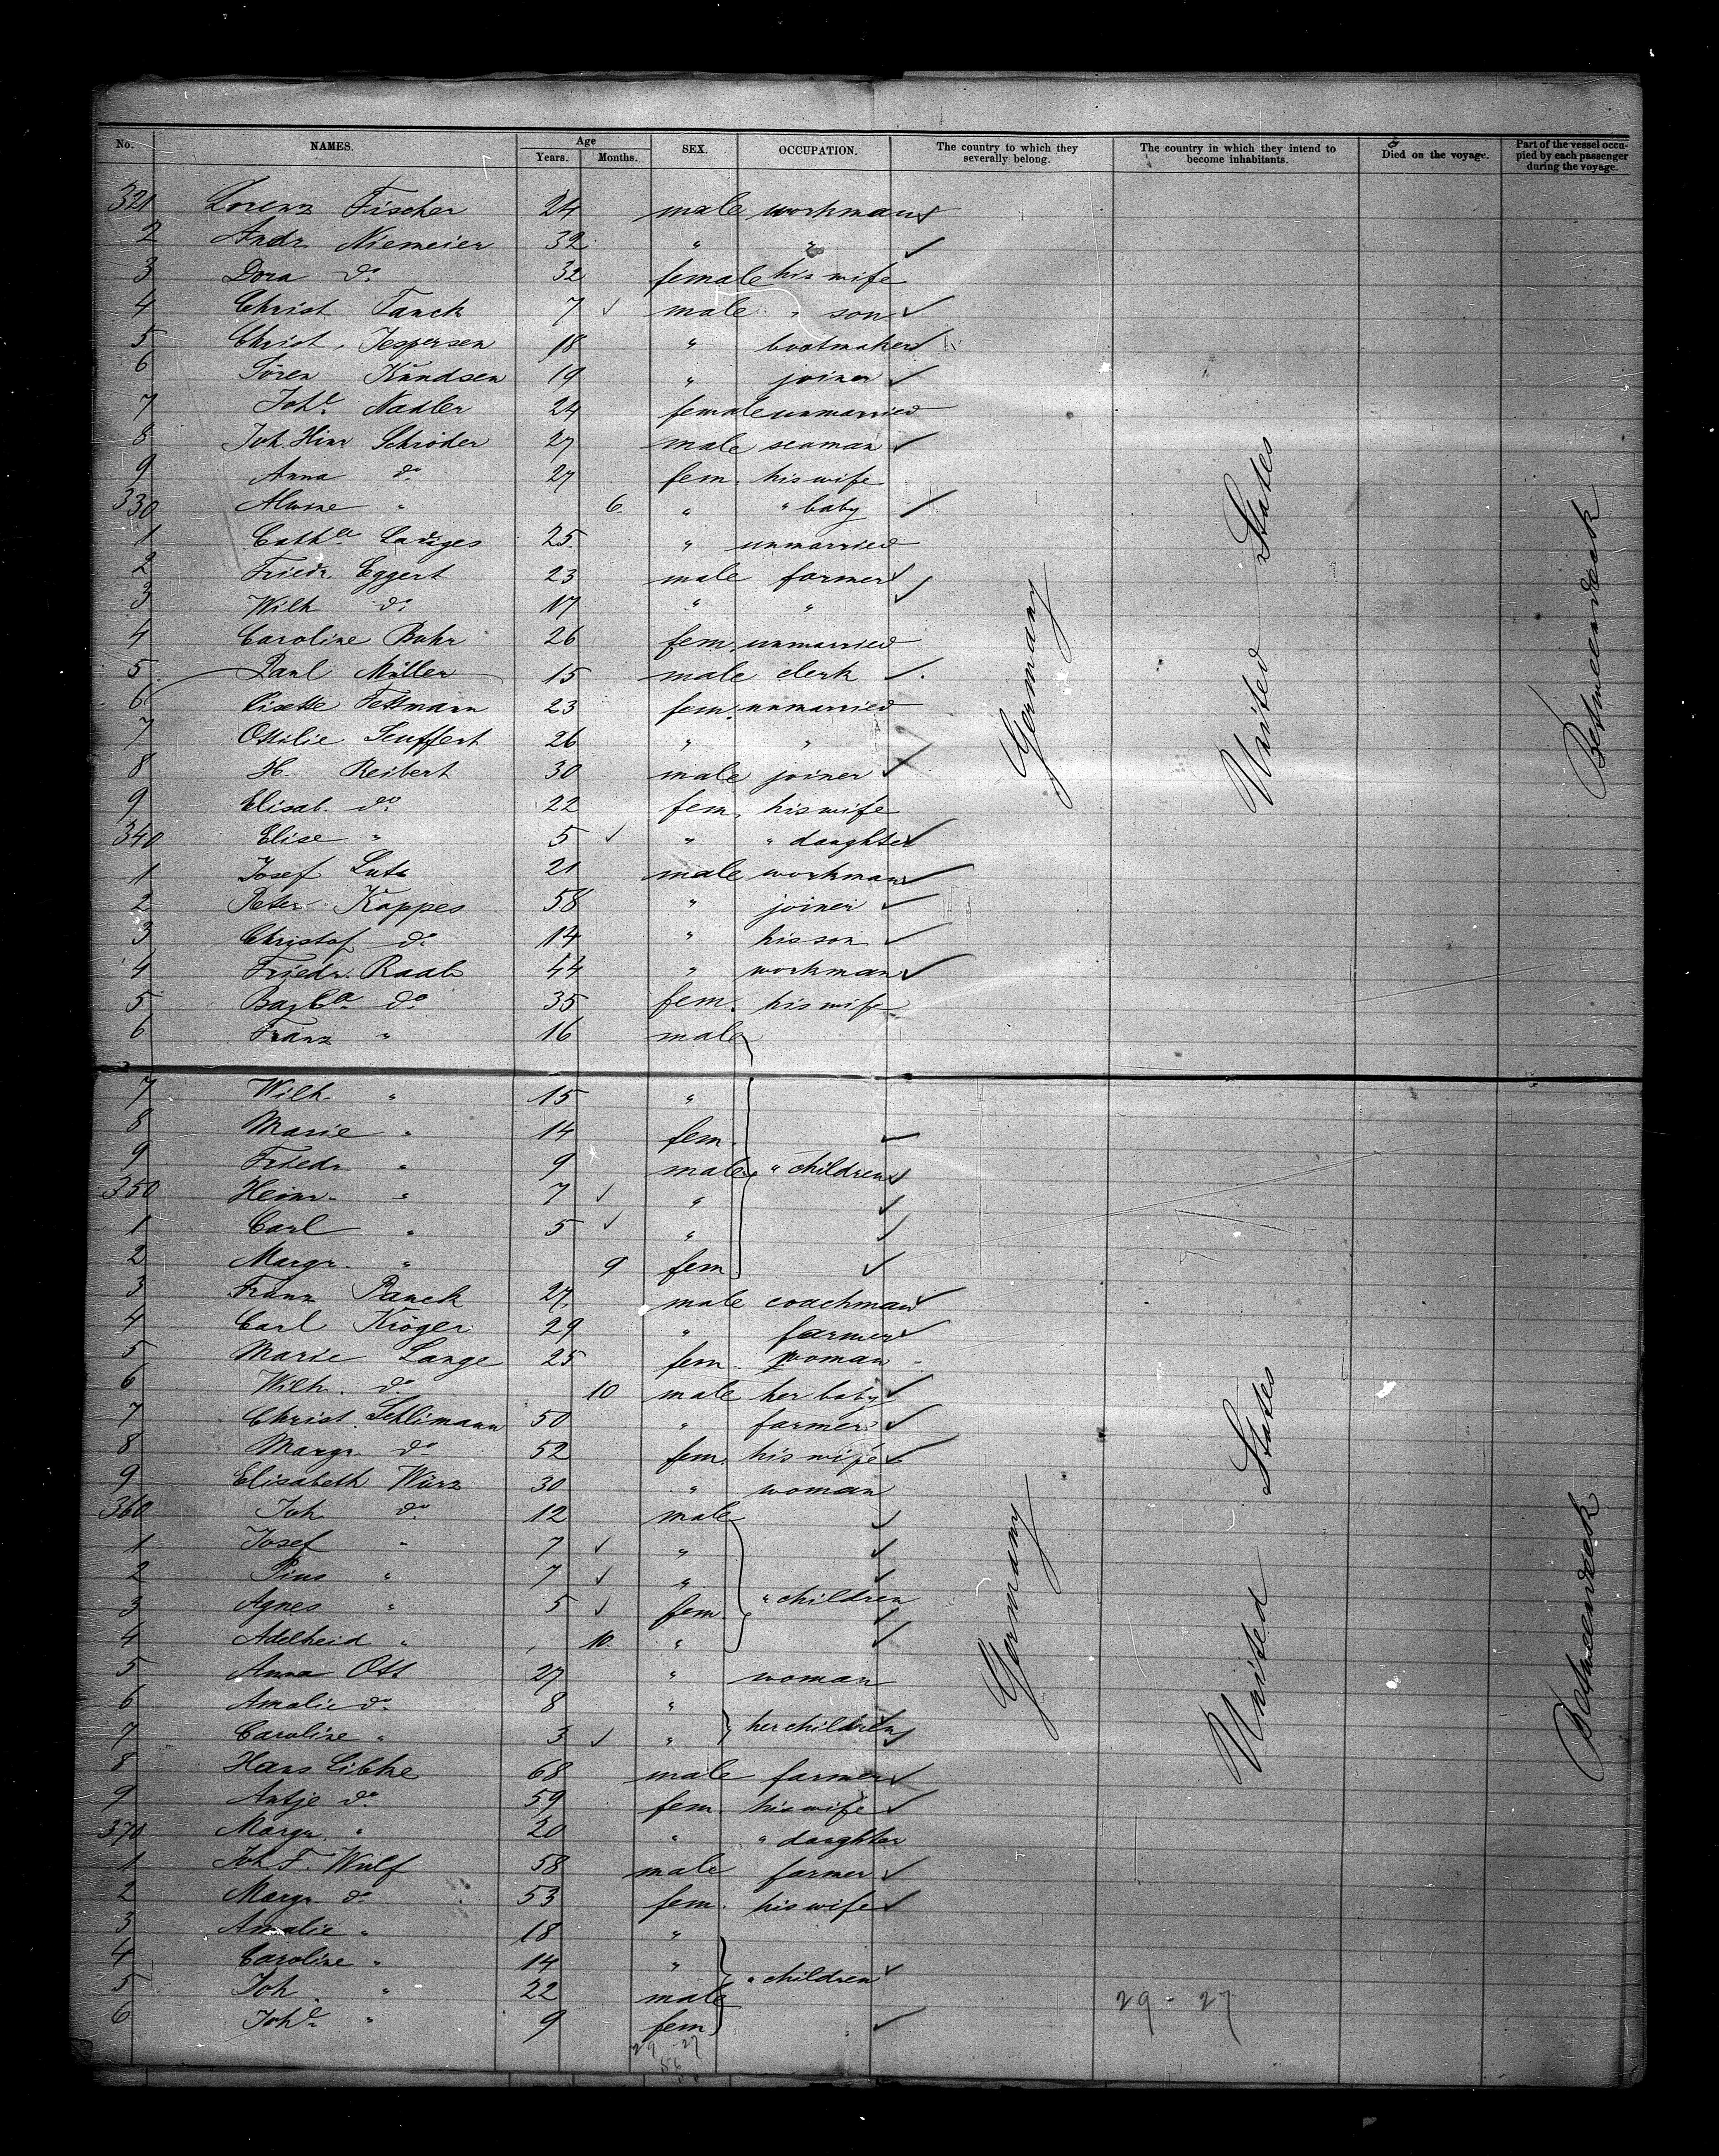 No. NAMES. Age Years. Months. SEX. OCCUPATION. The country to which they severally belong. The country in which they intend to become inhabitants. Died on the voyage. Part of the vessel occupied by each passenger during the voyage.
321 Lorenz Fischer 24 male workman
2 Andr. Niemeier 32 " "
3 Dora do. 32 female his wife
4 Christ Tanck 7 male " son
5 Christ. Jespersen 18 " bootmaker
6 Sören Knudsen 19 " joiner
7 Johe. Nadler 24 female unmarried
8 Joh. Hinr Schröder 27 male seaman
9 Anna do. 27 fem. his wife
330 " 6 " " baby
1 Catha. 25 " unmarried
2 Friedr. Eggert 23 male farmer
3 Wilh do. 17 " "
4 Caroline Buhr 26 fem. unmarried
5 Paul Müller 15 male clerk
6 Lisette Tettmann 23 fem. unmarried
7 Ottilie Seuffert 26 " "
8 H. Reibert 30 male joiner
9 Elisab. do. 22 fem. his wife
340 Elise " 5 " " daughter
1 Josef Lutz 21 male workman
2 Peter Kappes 58 " joiner
3 Christof do. 14 " his son
4 Friedr. Raab 44 " workman
5 Barba. do. 35 fem. his wife
6 Franz " 16 male
7 Wilh. " 15 "
8 Marie " 14 fem.
9 Friedr " 9 male " children
350 Heinr. " 7 "
1 Carl " 5 "
2 Margr. " 9 fem
3 Franz Panck 27 male coachman
4 Carl Kröger 29 " farmer
5 Marie Lange 25 fem. woman
6 Wilh. do. 10 male her baby
7 Christ. Schlimann 50 " farmer
8 Margr. do. 52 fem. his wife
9 Elisabeth Würz 30 " woman
360 Joh do. 12 male
1 Josef " 7 "
2 Pius " 7 "
3 Agnes " 5 fem " children
4 Adelheid " 10 "
5 Anna Ott 27 " woman
6 Amalie do. 8 "
7 Caroline " 3 " her children
8 Hans Libke 68 male farmer
9 Antje do. 59 fem. his wife
370 Margr. " 20 " " daughter
1 Joh F. Wulf 58 male farmer
2 Margr do. 53 fem. his wife
3 Amalie " 18 "
4 Caroline " 14 "
5 Joh. " 22 male " children
6 Johe. " 9 fem
Germany United States Betweendeck
Germany United States Betweendeck
29 - 27
29 - 27
56